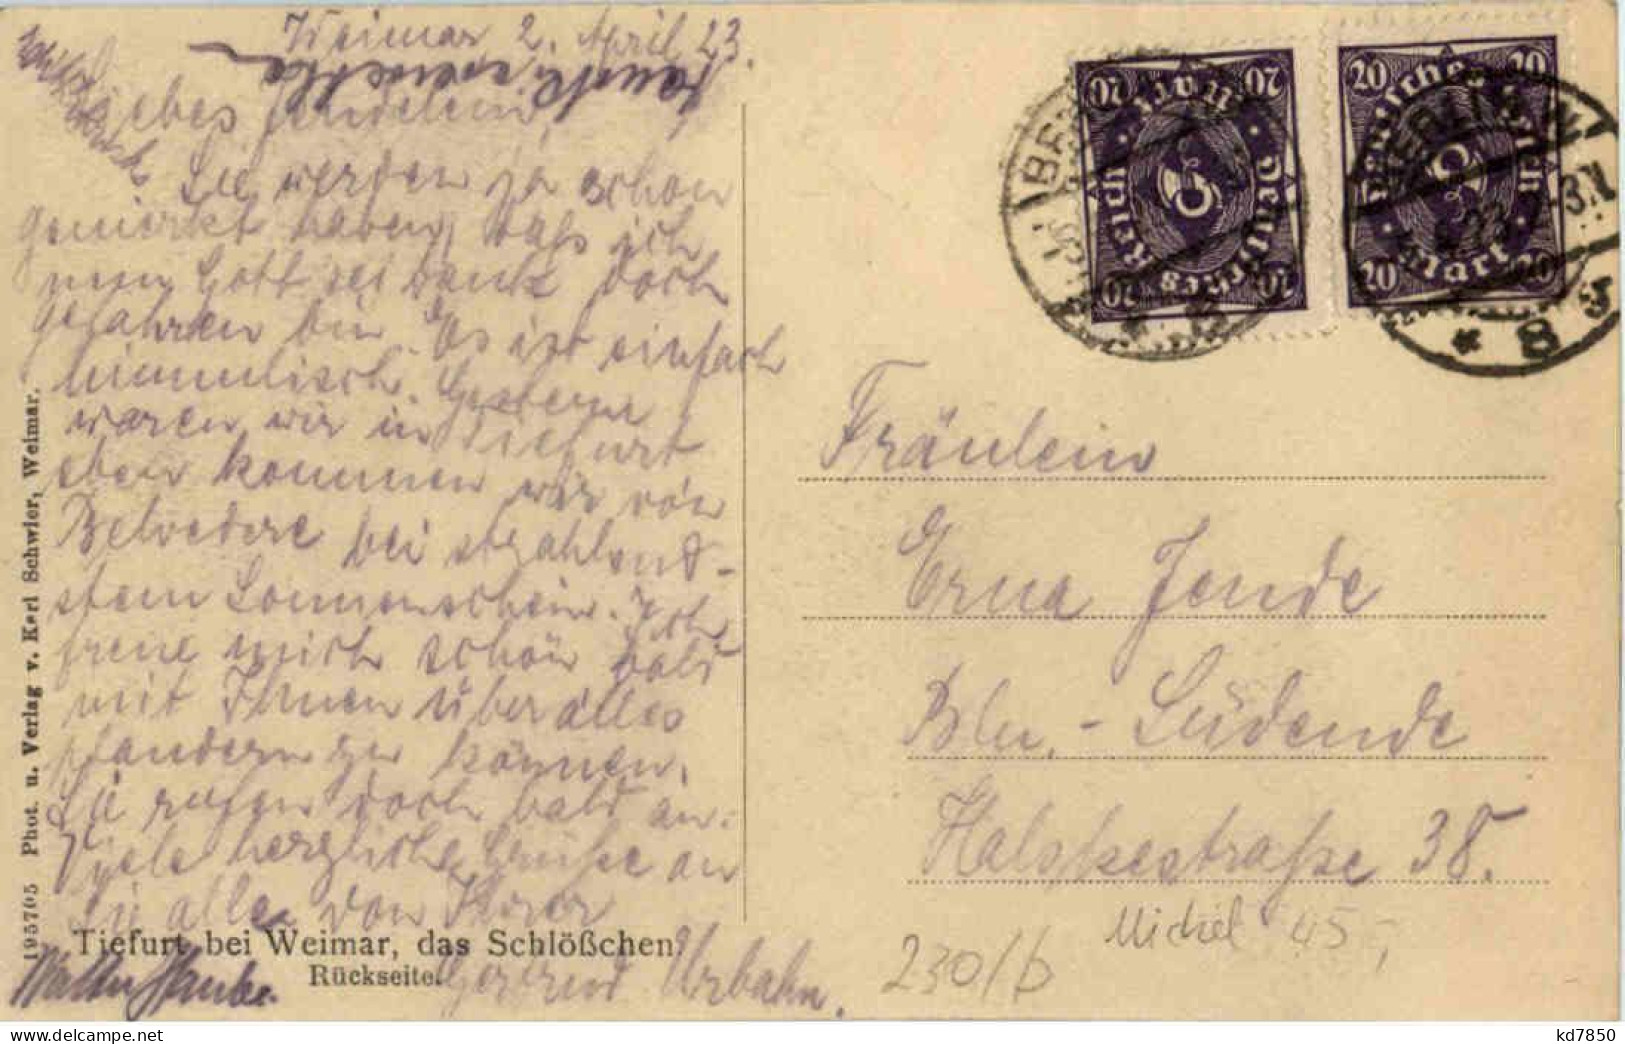 Weimar 2. April 23.
Liebes Jendelein,
Sie werden ja schon
gemerkt haben, daß ich
nun Gott sei Dank doch
gefahren bin. Es ist einfach
himmlisch. Gestern
waren wir in Tiefurt
eben kommen wir von
Belvedere bei strahlend-
stem Sonnenschein. Ich
freue mich schon bald
mit Ihnen über alles
plaudern zu können.
Sie rufen doch bald an.
Viele herzliche Grüße an
Sie alle von Ihrer
Gertrud Urbahn.
Tiefurt bei Weimar, das Schlößchen.
Rückseite.
195705 Phot. u. Verlag v. Karl Schwier, Weimar.
Fräulein
Erna Jende
Bln.-Südende
Halskestraße 38.
Michel 45,-
230/b
20 20
Deutsches Reich
20 Mark 20
20 20
Deutsches Reich
20 Mark 20
BERLIN N
* 8
kd7850